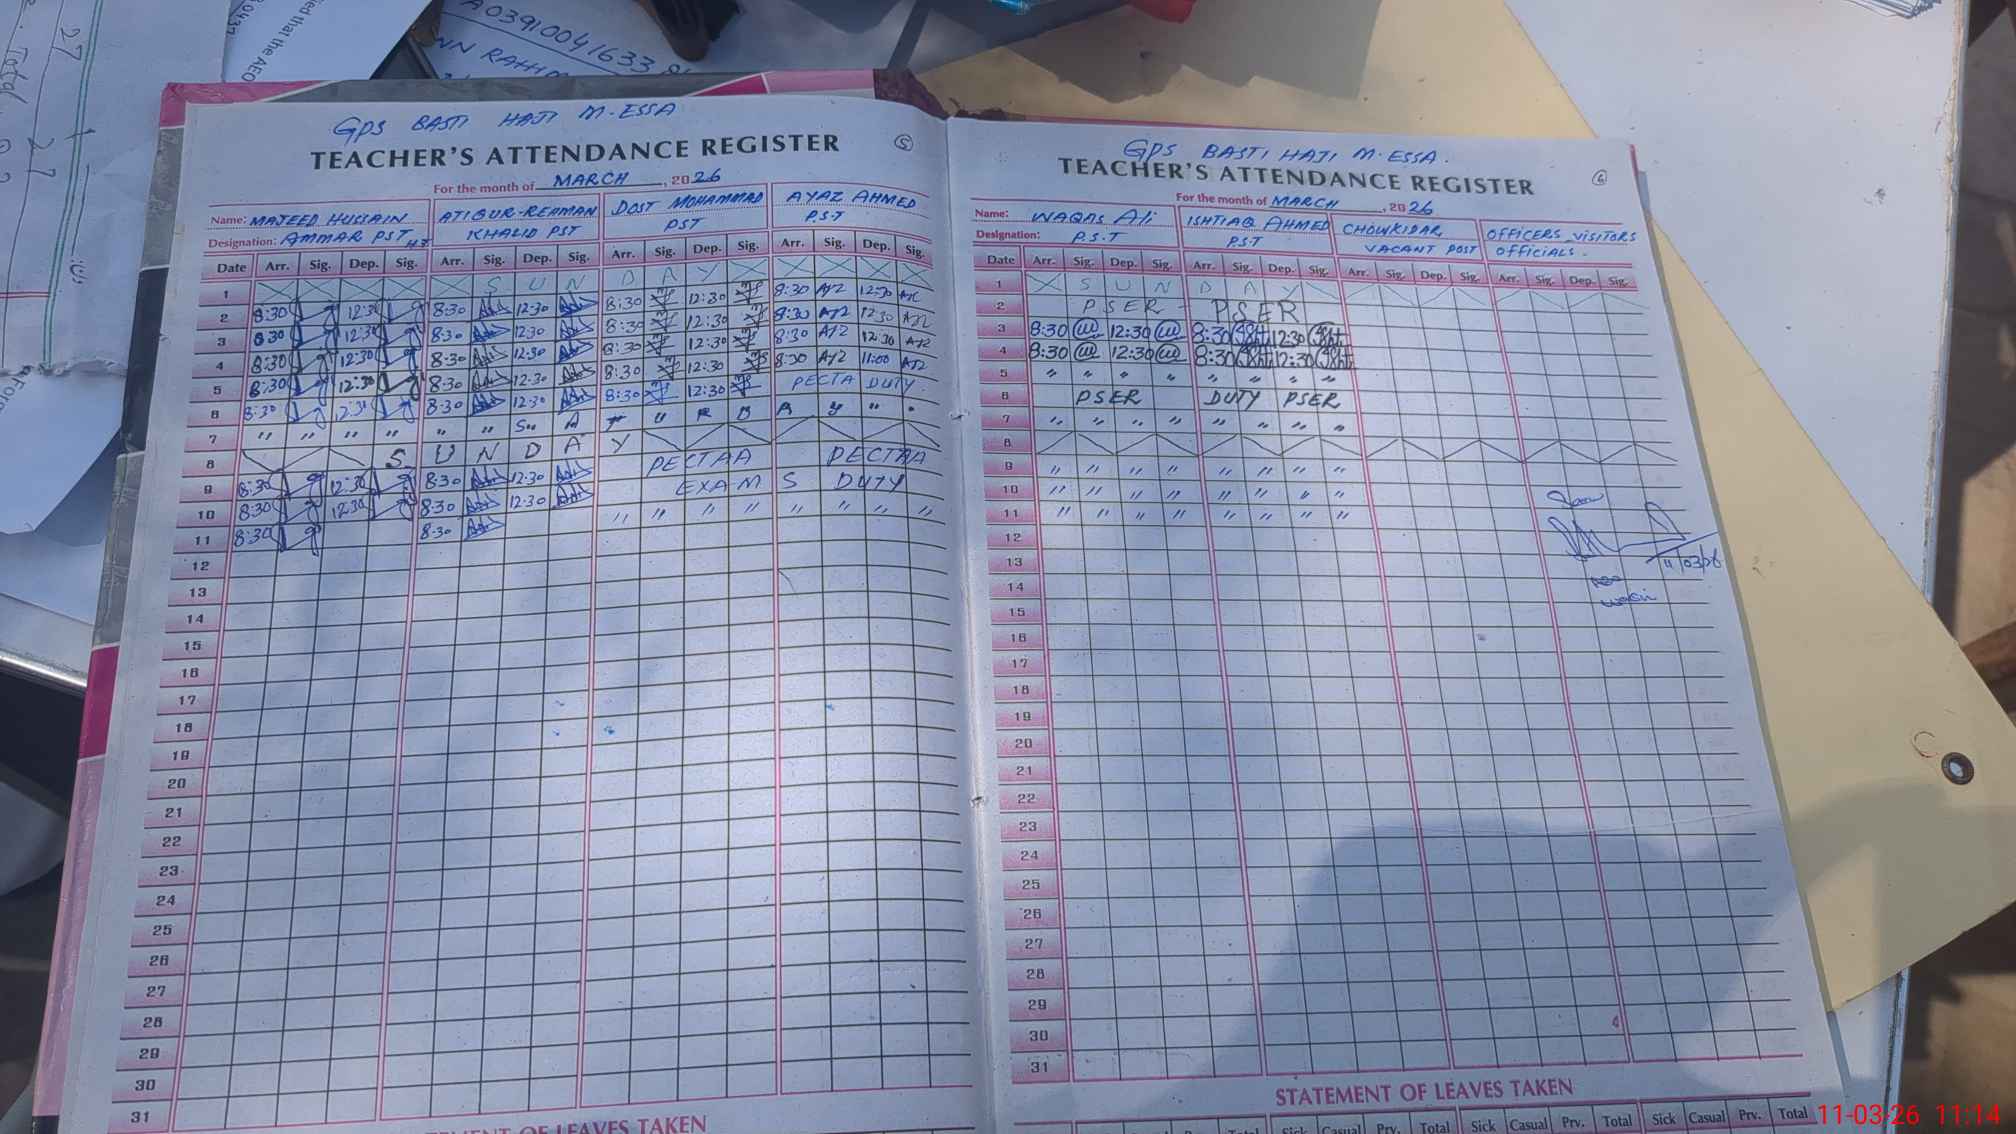 A03910041633
GPS BASTI HAJI M. ESSA
TEACHER'S ATTENDANCE REGISTER
5
For the month of MARCH, 2026
Name: MAJEED HUSSAIN ATIQUR-REHMAN DOST MOHAMMAD AYAZ AHMED
Designation: AMMAR PST KHALID PST PST P.S.T
Date Arr. Sig. Dep. Sig. Arr. Sig. Dep. Sig. Arr. Sig. Dep. Sig. Arr. Sig. Dep. Sig.
1 S U N D A Y
2 8:30 12:30 8:30 12:30 8:30 12:30 8:30 12:30
3 8:30 12:30 8:30 12:30 8:30 12:30 8:30 12:30
4 8:30 12:30 8:30 12:30 8:30 12:30 8:30 12:30
5 8:30 12:30 8:30 12:30 8:30 12:30 8:30 11:00
6 8:30 12:30 8:30 12:30 8:30 12:30 PECTA DUTY
7 " " " " " "
8 S U N D A Y
9 8:30 12:30 8:30 12:30 PECTAA PECTAA
10 8:30 12:30 8:30 12:30 EXAM S DUTY
11 8:30 8:30 " " " " " " " "
12
13
14
15
16
17
18
19
20
21
22
23
24
25
26
27
28
29
30
31
STATEMENT OF LEAVES TAKEN
GPS BASTI HAJI M. ESSA.
TEACHER'S ATTENDANCE REGISTER
6
For the month of MARCH, 2026
Name: WAQAS Ali ISHTIAQ AHMED CHOWKIDAR OFFICERS VISITORS
Designation: P.S.T P.S.T VACANT POST OFFICIALS.
Date Arr. Sig. Dep. Sig. Arr. Sig. Dep. Sig. Arr. Sig. Dep. Sig. Arr. Sig. Dep. Sig.
1 S U N D A Y
2 PSER - PSER
3 8:30 12:30 8:30 12:30
4 8:30 12:30 8:30 12:30
5 " " " " " " " "
6 PSER DUTY PSER
7 " " " " " " " "
8
9 " " " " " " " "
10 " " " " " " " "
11 " " " " " " " "
12
13 11/03/26
14
15
16
17
18
19
20
21
22
23
24
25
26
27
28
29
30
31
STATEMENT OF LEAVES TAKEN
Sick Casual Prv. Total Sick Casual Prv. Total Sick Casual Prv. Total
11-03-26 11:14